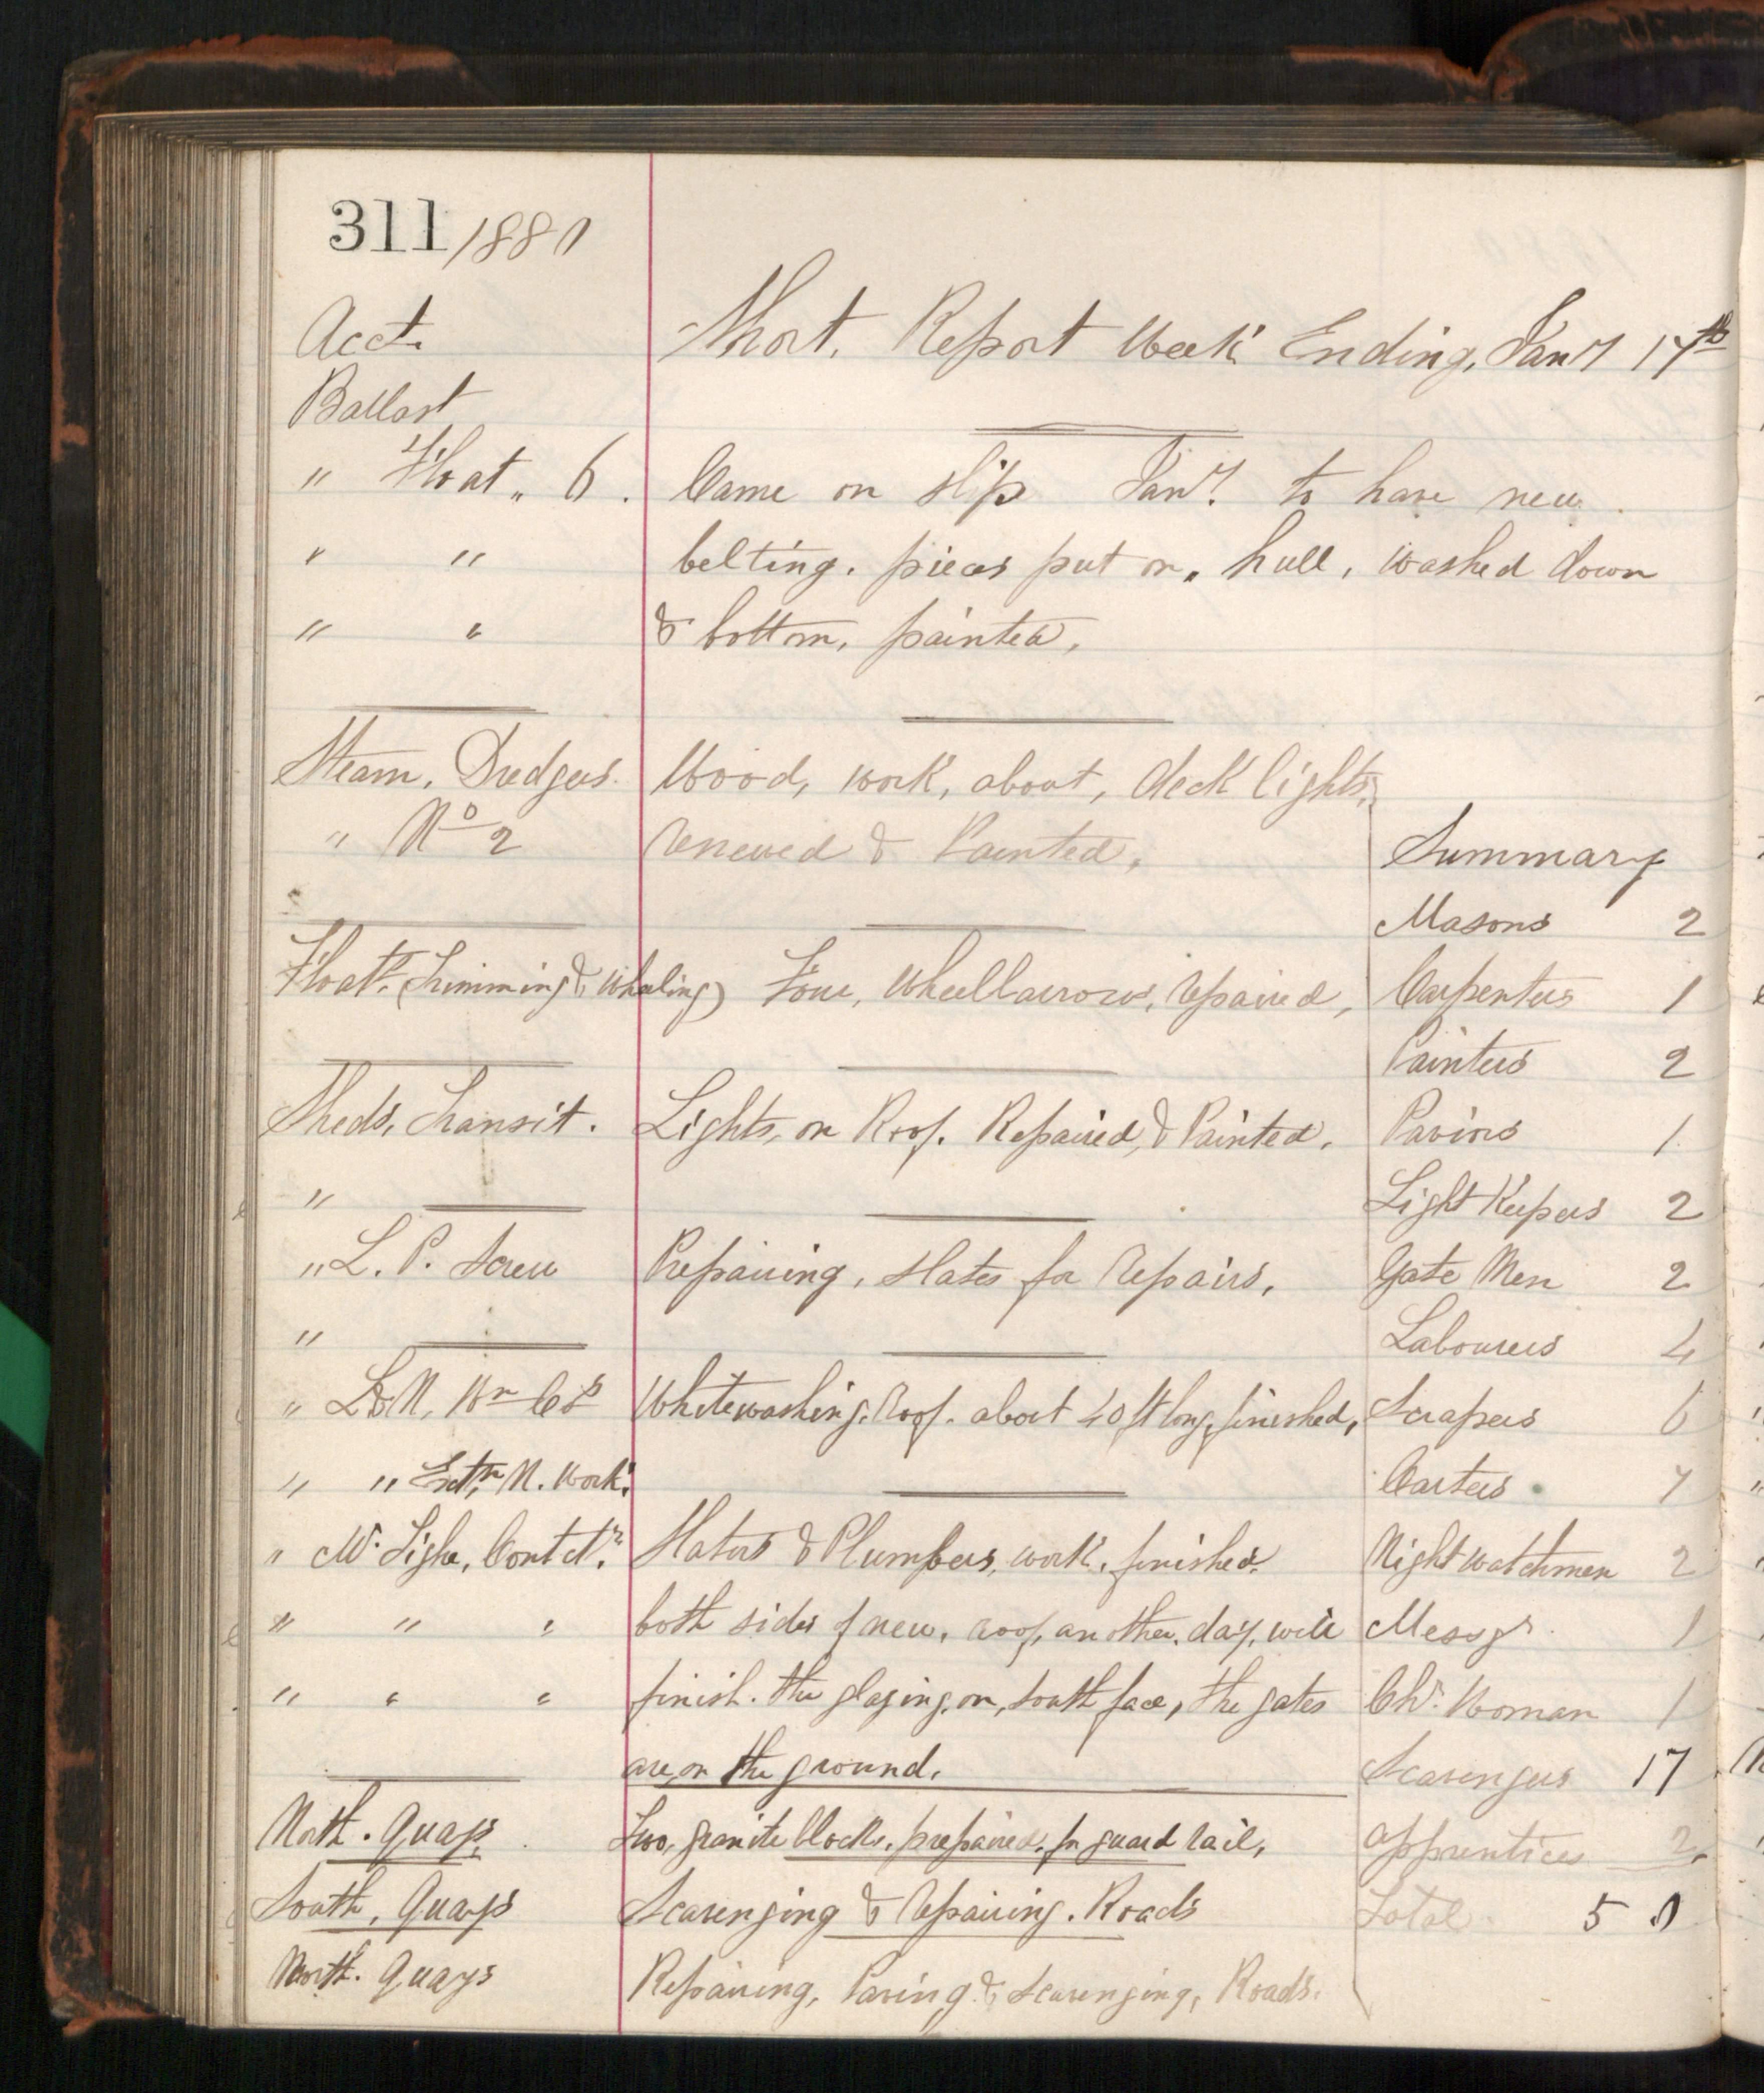 311/1880
Acct. Short. Report Week Ending, Jany 17th
Ballast
" Float " 6. Came on slip Jany. to have new
" " belting. pieces put on. hull, washed down
" " & bottom, painted,
Steam, Dredgers. Wood, work, about, deck lights,
" No 2 renewed & Painted, Summary
Masons 2
Floatg. (Trimming & Wheeling) Four, Wheelbarrows, repaired, Carpenters 1
Painters 2
Sheds, Transit. Lights, on Roof. Repaired, & Painted. Paviors 1
" Light Keepers 2
" L. P. Screw Preparing, Slates for Repairs. Gate Men 2
" Labourers 4
" L & N. Wn Co's Whitewashing. Roof. about 40 ft long, finished, Scrapers 6
" " Extn, N. Work. Carters 7
" Mr. Tighe, Contctr. Slaters & Plumbers, work. finished. Night watchmen 2
" " " both sides of new. roof, another. day, will Messgr. 1
" " " finish. the glazing, on, south face, the gates Chr. Woman 1
are, on the ground. Scavengers 17
North. Quays Two, granite blocks. prepared. for guard rail, Apprentices 2
South, Quays Scavenging & Repairing. Roads Total. 50
North. Quays Repairing, Paving & Scavenging, Roads.